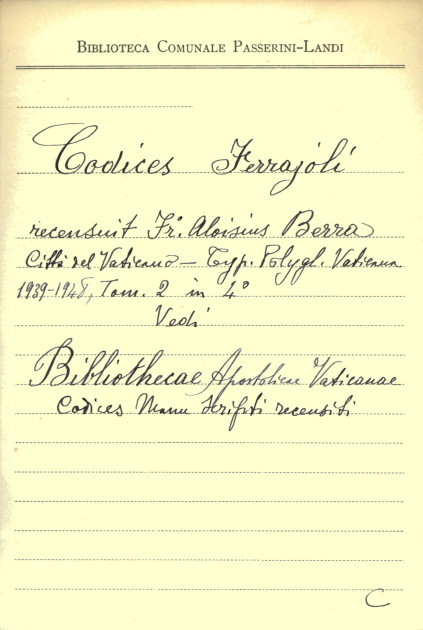 BIBLIOTECA COMUNALE PASSERINI-LANDI
Codices Ferrajoli
recensuit Fr. Aloisius Berra
Città del Vaticano - Typ. Polygl. Vaticana
1939-1948, Tom. 2 in 4°
Vedi
Bibliothecae Apostolicae Vaticanae
Codices Manu scripti recensiti
C